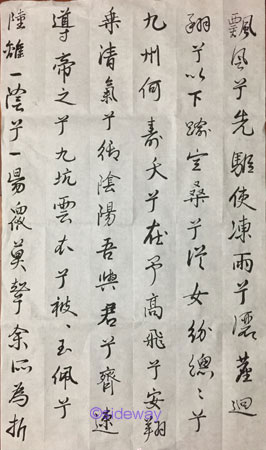 飄風兮先驅使凍雨兮灑塵迴
翔兮以下踰空桑兮從女紛總々兮
九州何壽夭兮在予高飛兮安翔
乘清氣兮御陰陽吾與君兮齊速
導帝之兮九坑雲衣兮被々玉佩兮
陸離一陰兮一陽衆莫知兮余所為折
©sideway